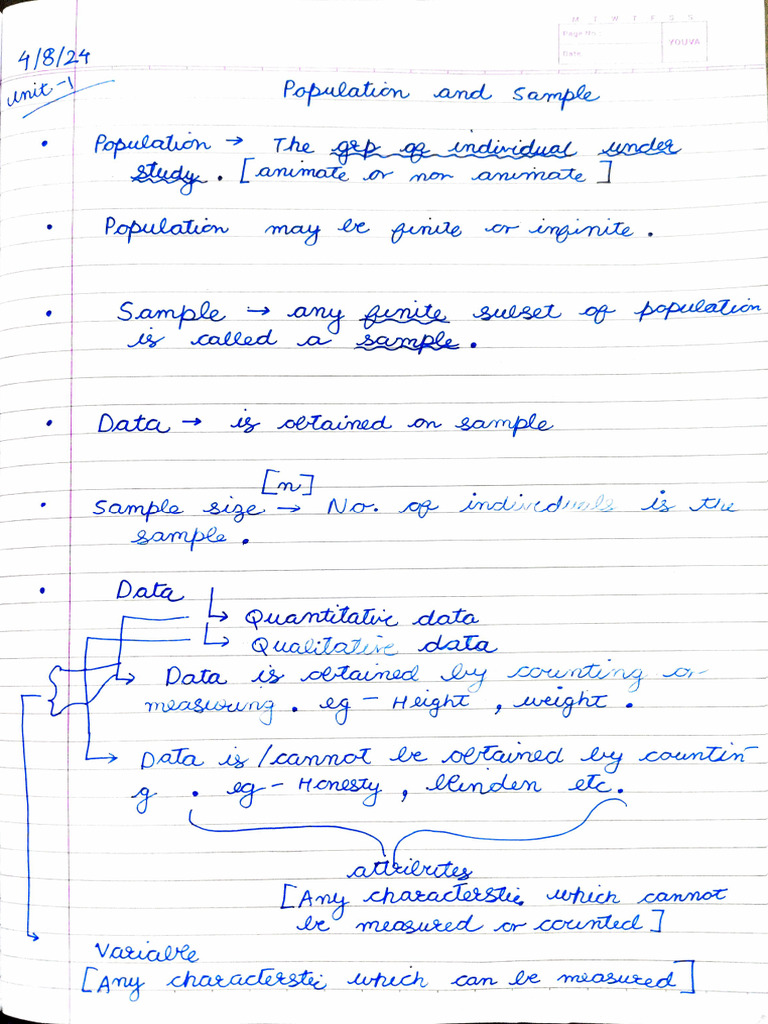 M T W T F S S
Page No.:
YOUVA
Date:
4/8/24
unit-1
Population and Sample
• Population → The grp of individual under
study. [animate or non animate]
• Population may be finite or infinite.
• Sample → any finite subset of population
is called a sample.
• Data → is obtained on sample
[n]
• Sample size → No. of individuals is the
sample.
• Data
↳ Quantitative data
↳ Qualitative data
→ Data is obtained by counting or
measuring. eg - Height, weight.
→ Data is / cannot be obtained by countin
g. eg - Honesty, etc.
attributes
[Any characterstic which cannot
be measured or counted]
Variable
[Any characterstic which can be measured]